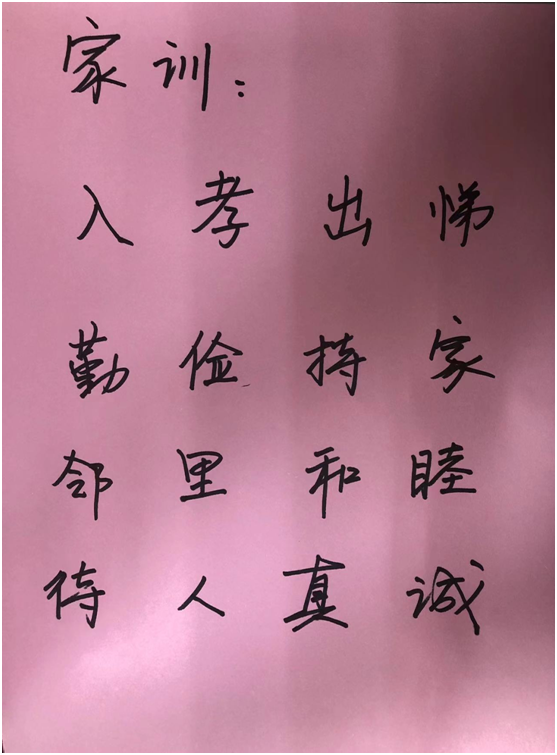 家训：
入孝出悌
勤俭持家
邻里和睦
待人真诚